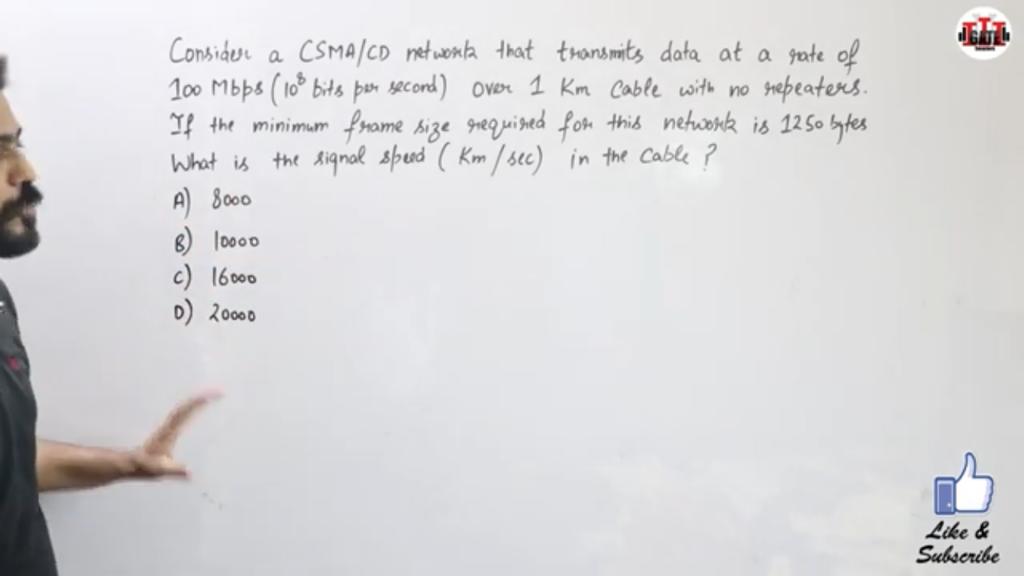 Consider a CSMA/CD network that transmits data at a rate of
100 Mbps (10⁸ bits per second) over 1 Km Cable with no repeaters.
If the minimum frame size required for this network is 1250 bytes
What is the signal speed (Km/sec) in the Cable?
A) 8000
B) 10000
C) 16000
D) 20000
GATE
Like &
Subscribe